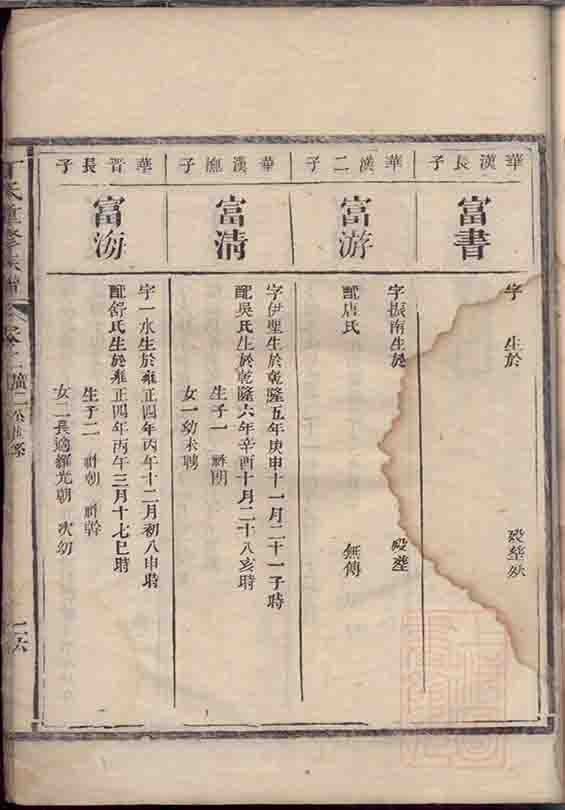 華漢長子
富書
字　生於
殁塟缺
華漢二子
富游
字振南生於
殁塟
配唐氏
無傳
華漢撫子
富清
字伊聖生於乾隆五年庚申十一月二十一子時
配吳氏生於乾隆六年辛酉十月二十八亥時
生子一
女一幼未聘
華晋長子
富海
字一水生於雍正四年丙午十二月初八申時
配舒氏生於雍正四年丙午三月十七巳時
生子二
女二長適羅光朝　次幼
丁氏重修族譜
二六